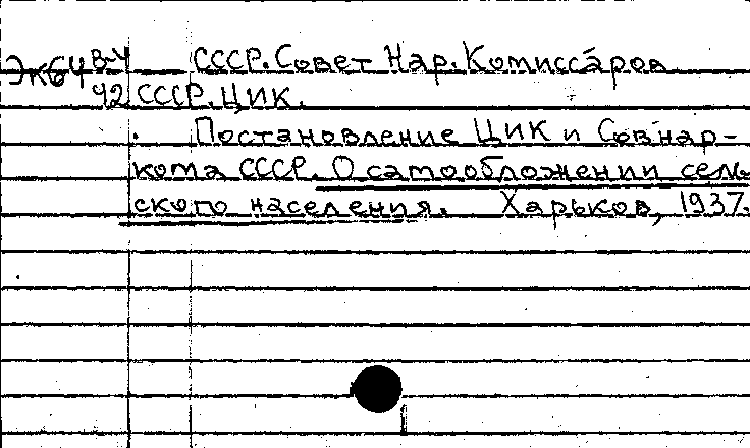 Эк64 В-4 СССР. Совет Нар. Комиссаров
42 СССР. ЦИК.
Постановление ЦИК и Совнар-
кома СССР. О самообложении сель
ского населения. Харьков, 1937.